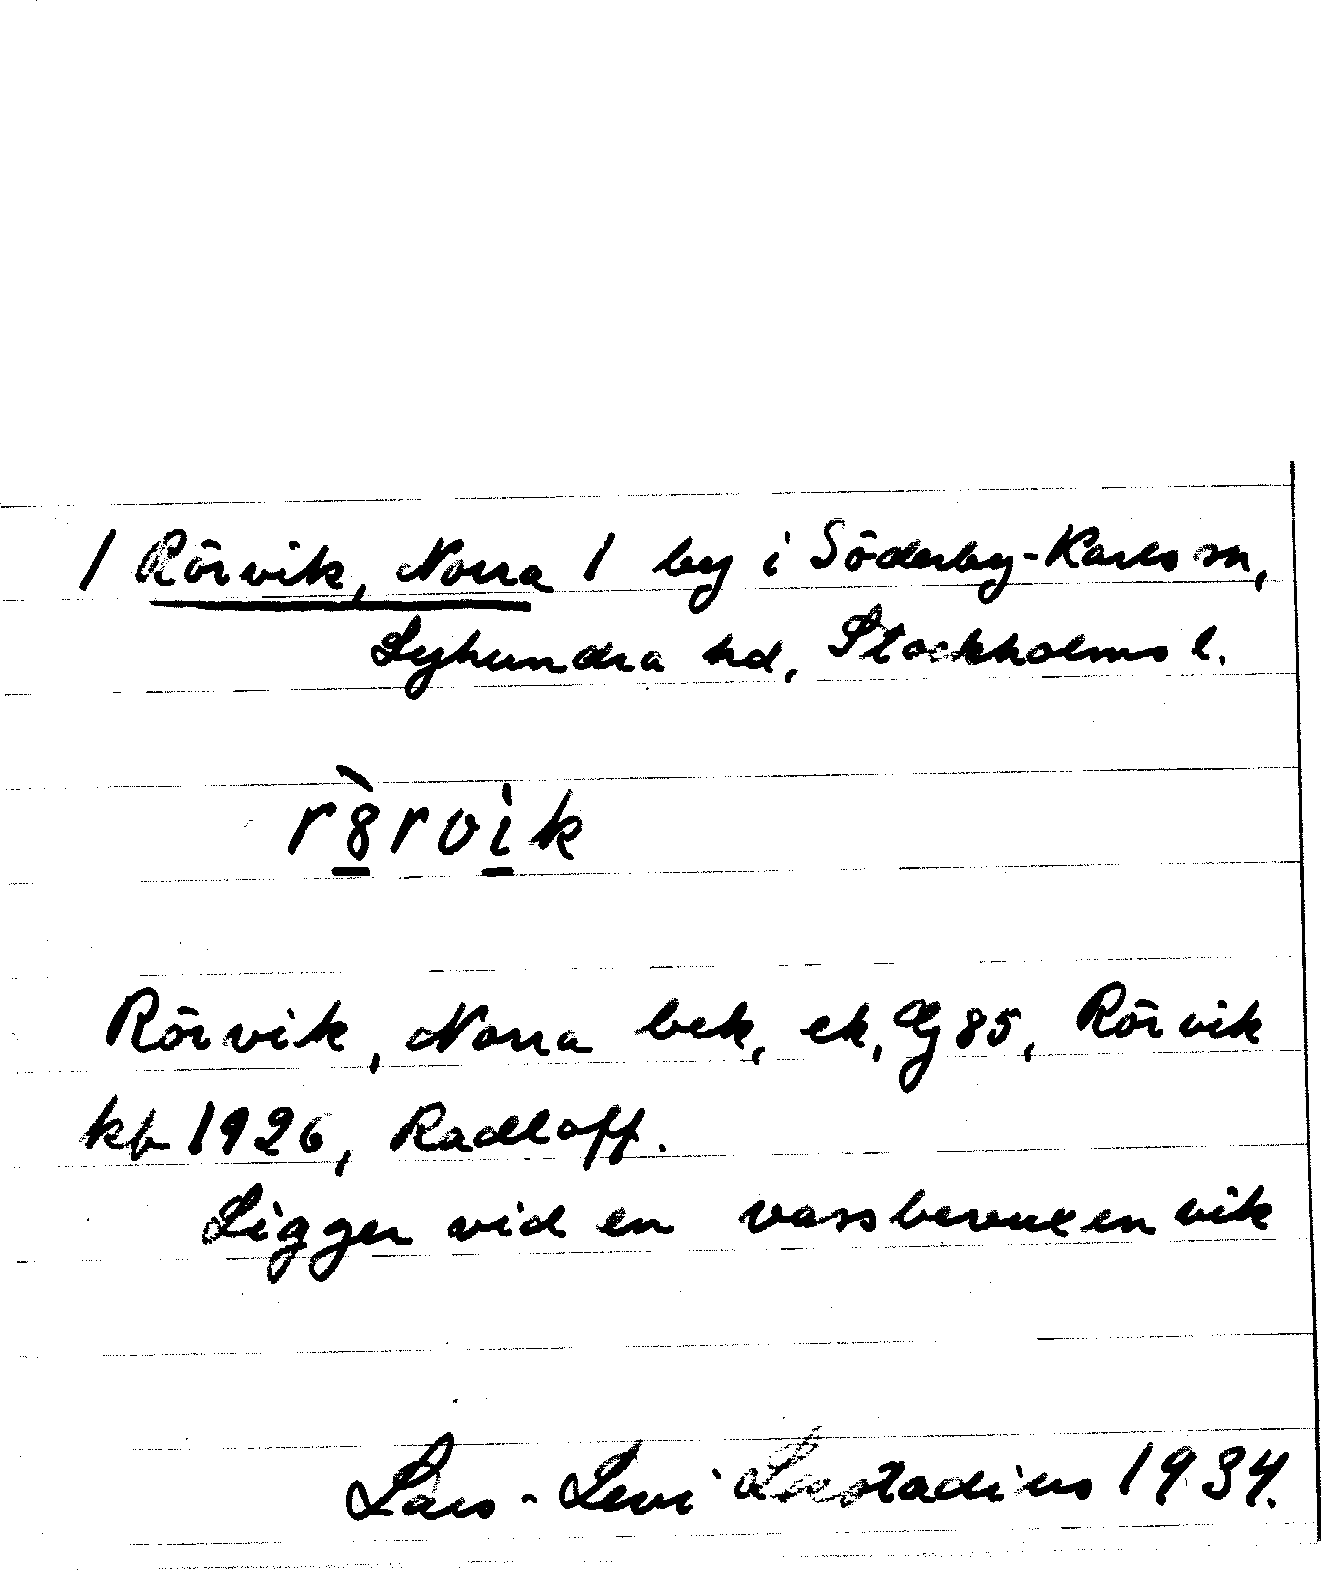 / Rörvik, Norra / by i Söderby-Karls sn,
Lyhundra hd, Stockholms l.
rö̀rvìk
Rörvik, Norra bek, ek, Gj 85, Rörvik
kb 1926, Radloff.
Ligger vid en vassbevuxen vik
Lars-Levi Læstadius 1934.